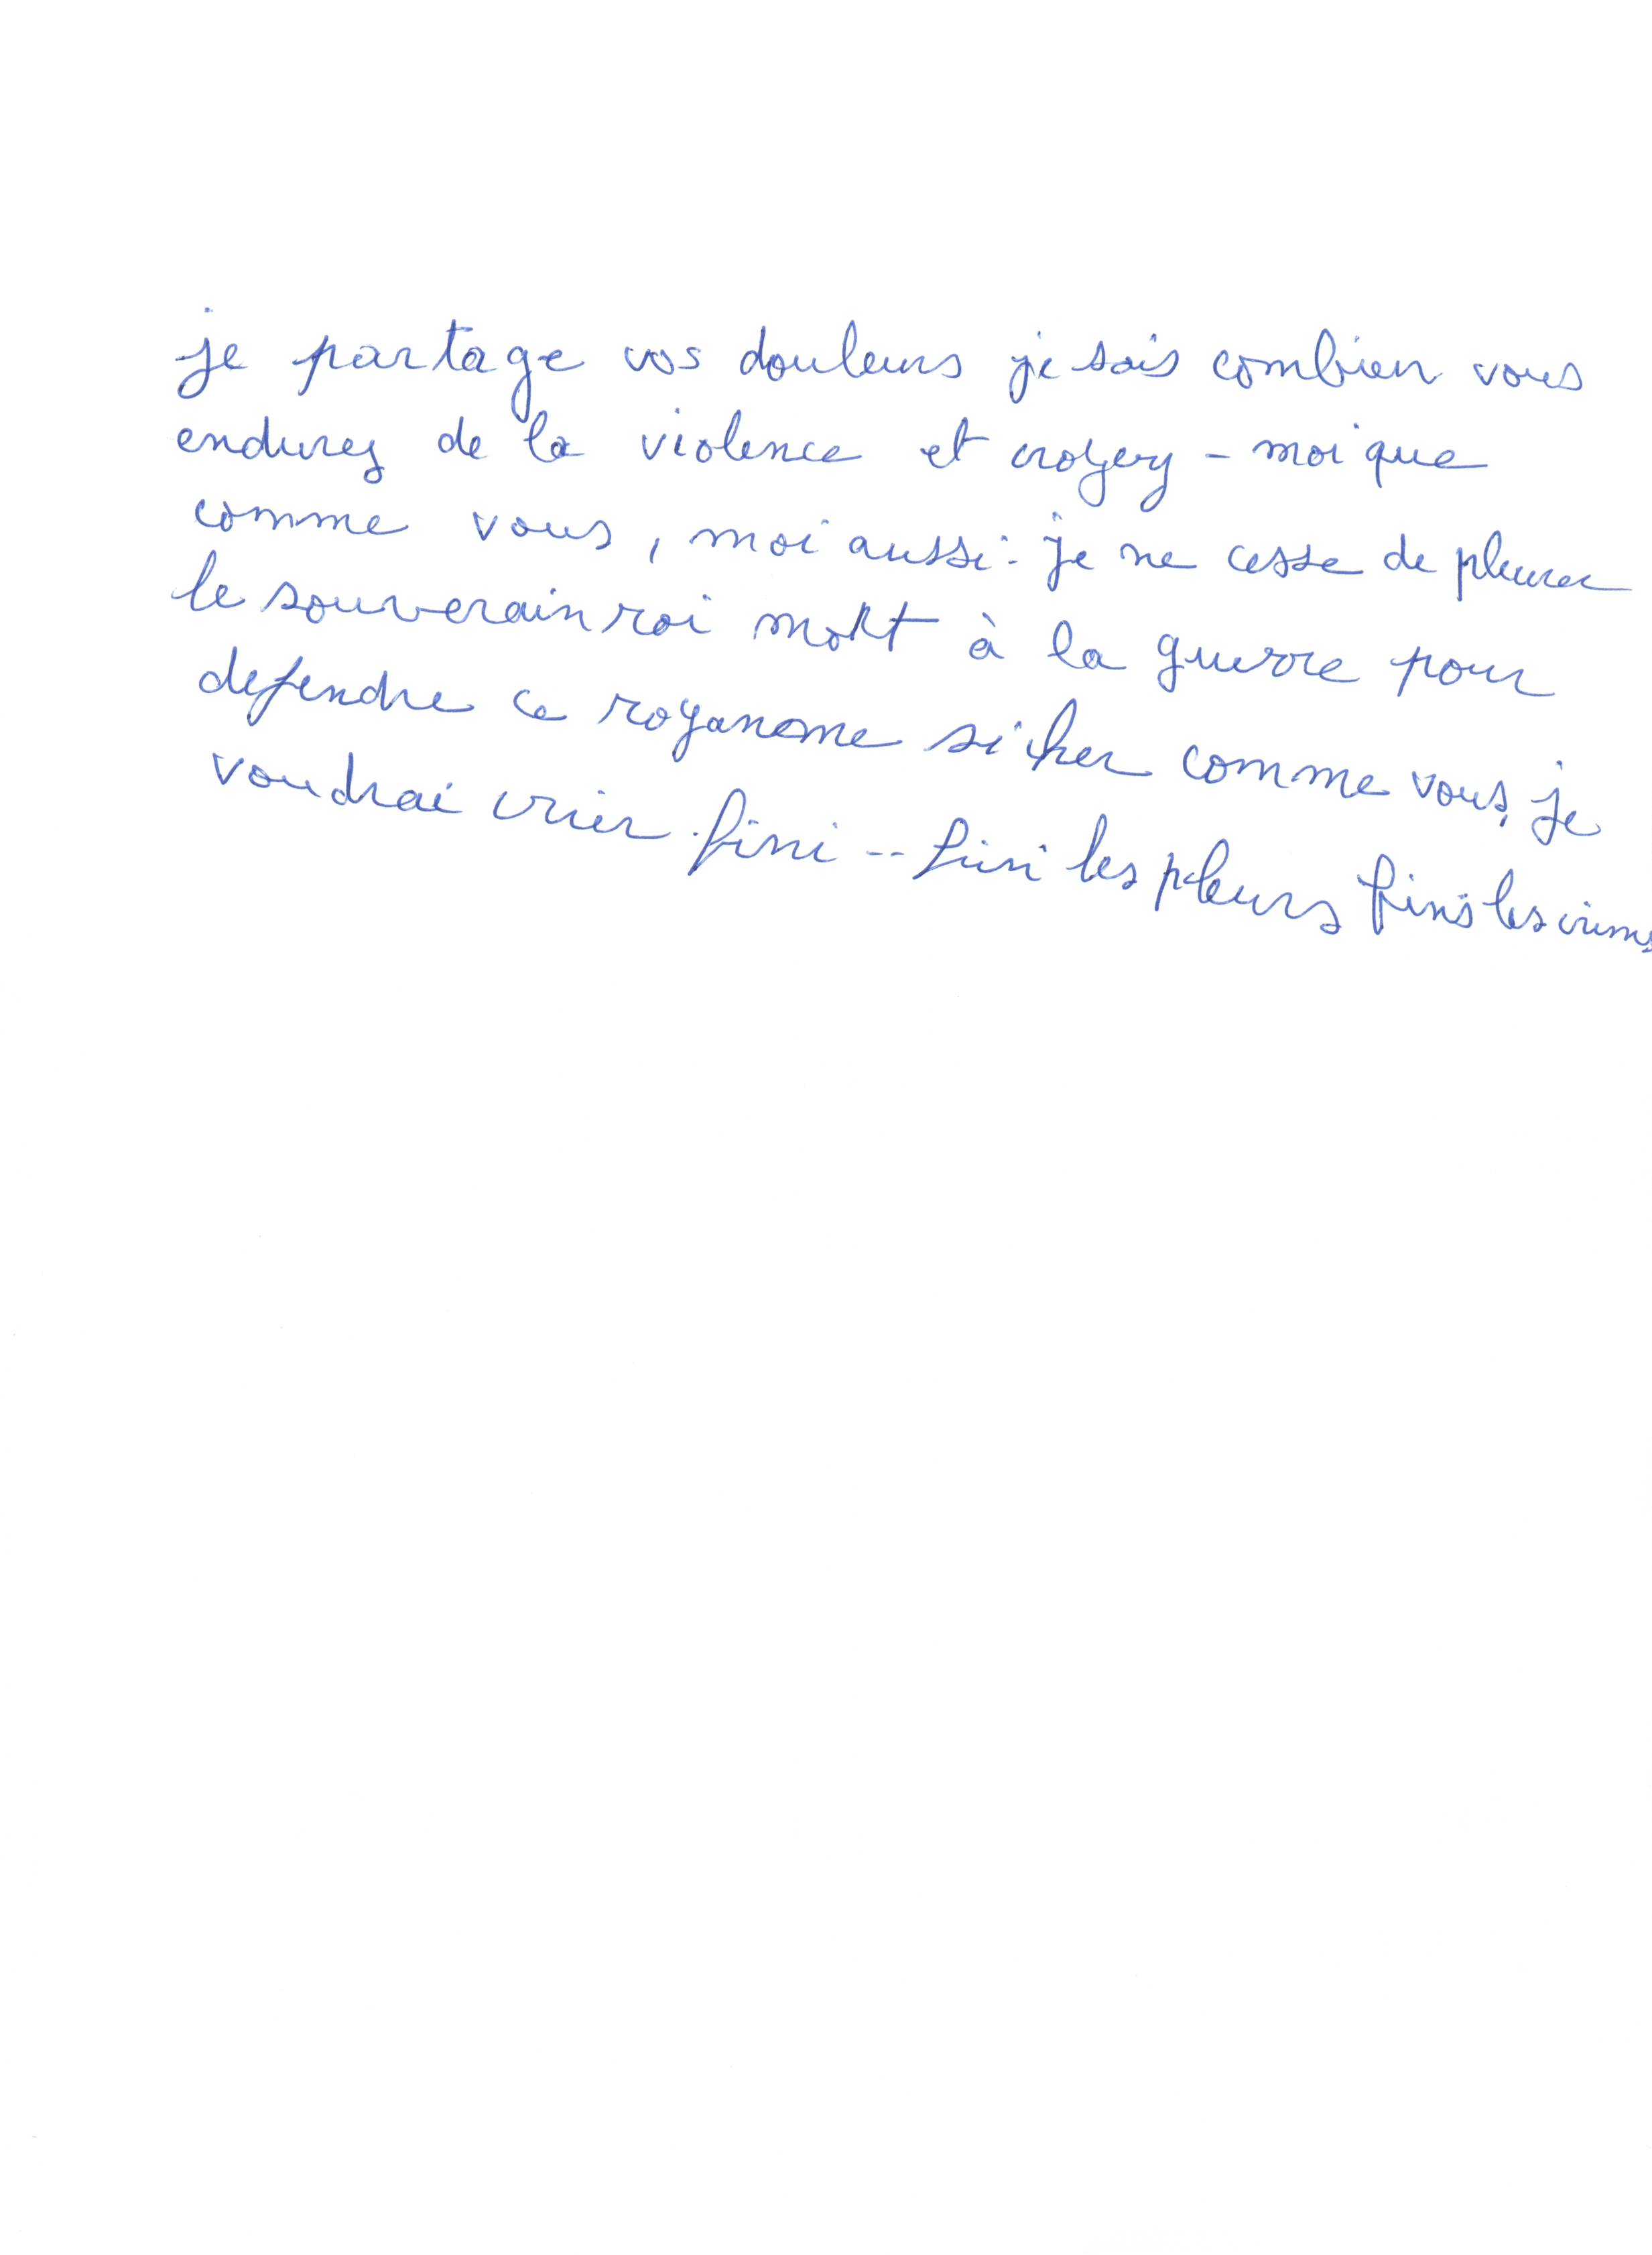 je partage vos douleurs je sais combien vous
endurez de la violence et croyez - moi que
comme vous, moi aussi : je ne cesse de pleurer
le souverain roi mort à la guerre pour
defendre ce royaume si cher comme vous, je
voudrai crier fini -- fini les pleurs finis les crimes